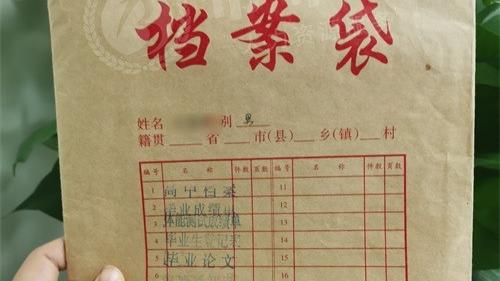 档案袋
姓名 别 男
籍贯 省 市(县) 乡(镇) 村
编号 名称 件数 页数 编号 名称 件数 页数
1 高中档案 11
2 毕业成绩单 12
3 体能测试成绩单 13
4 毕业生登记表 14
5 毕业论文 15
16